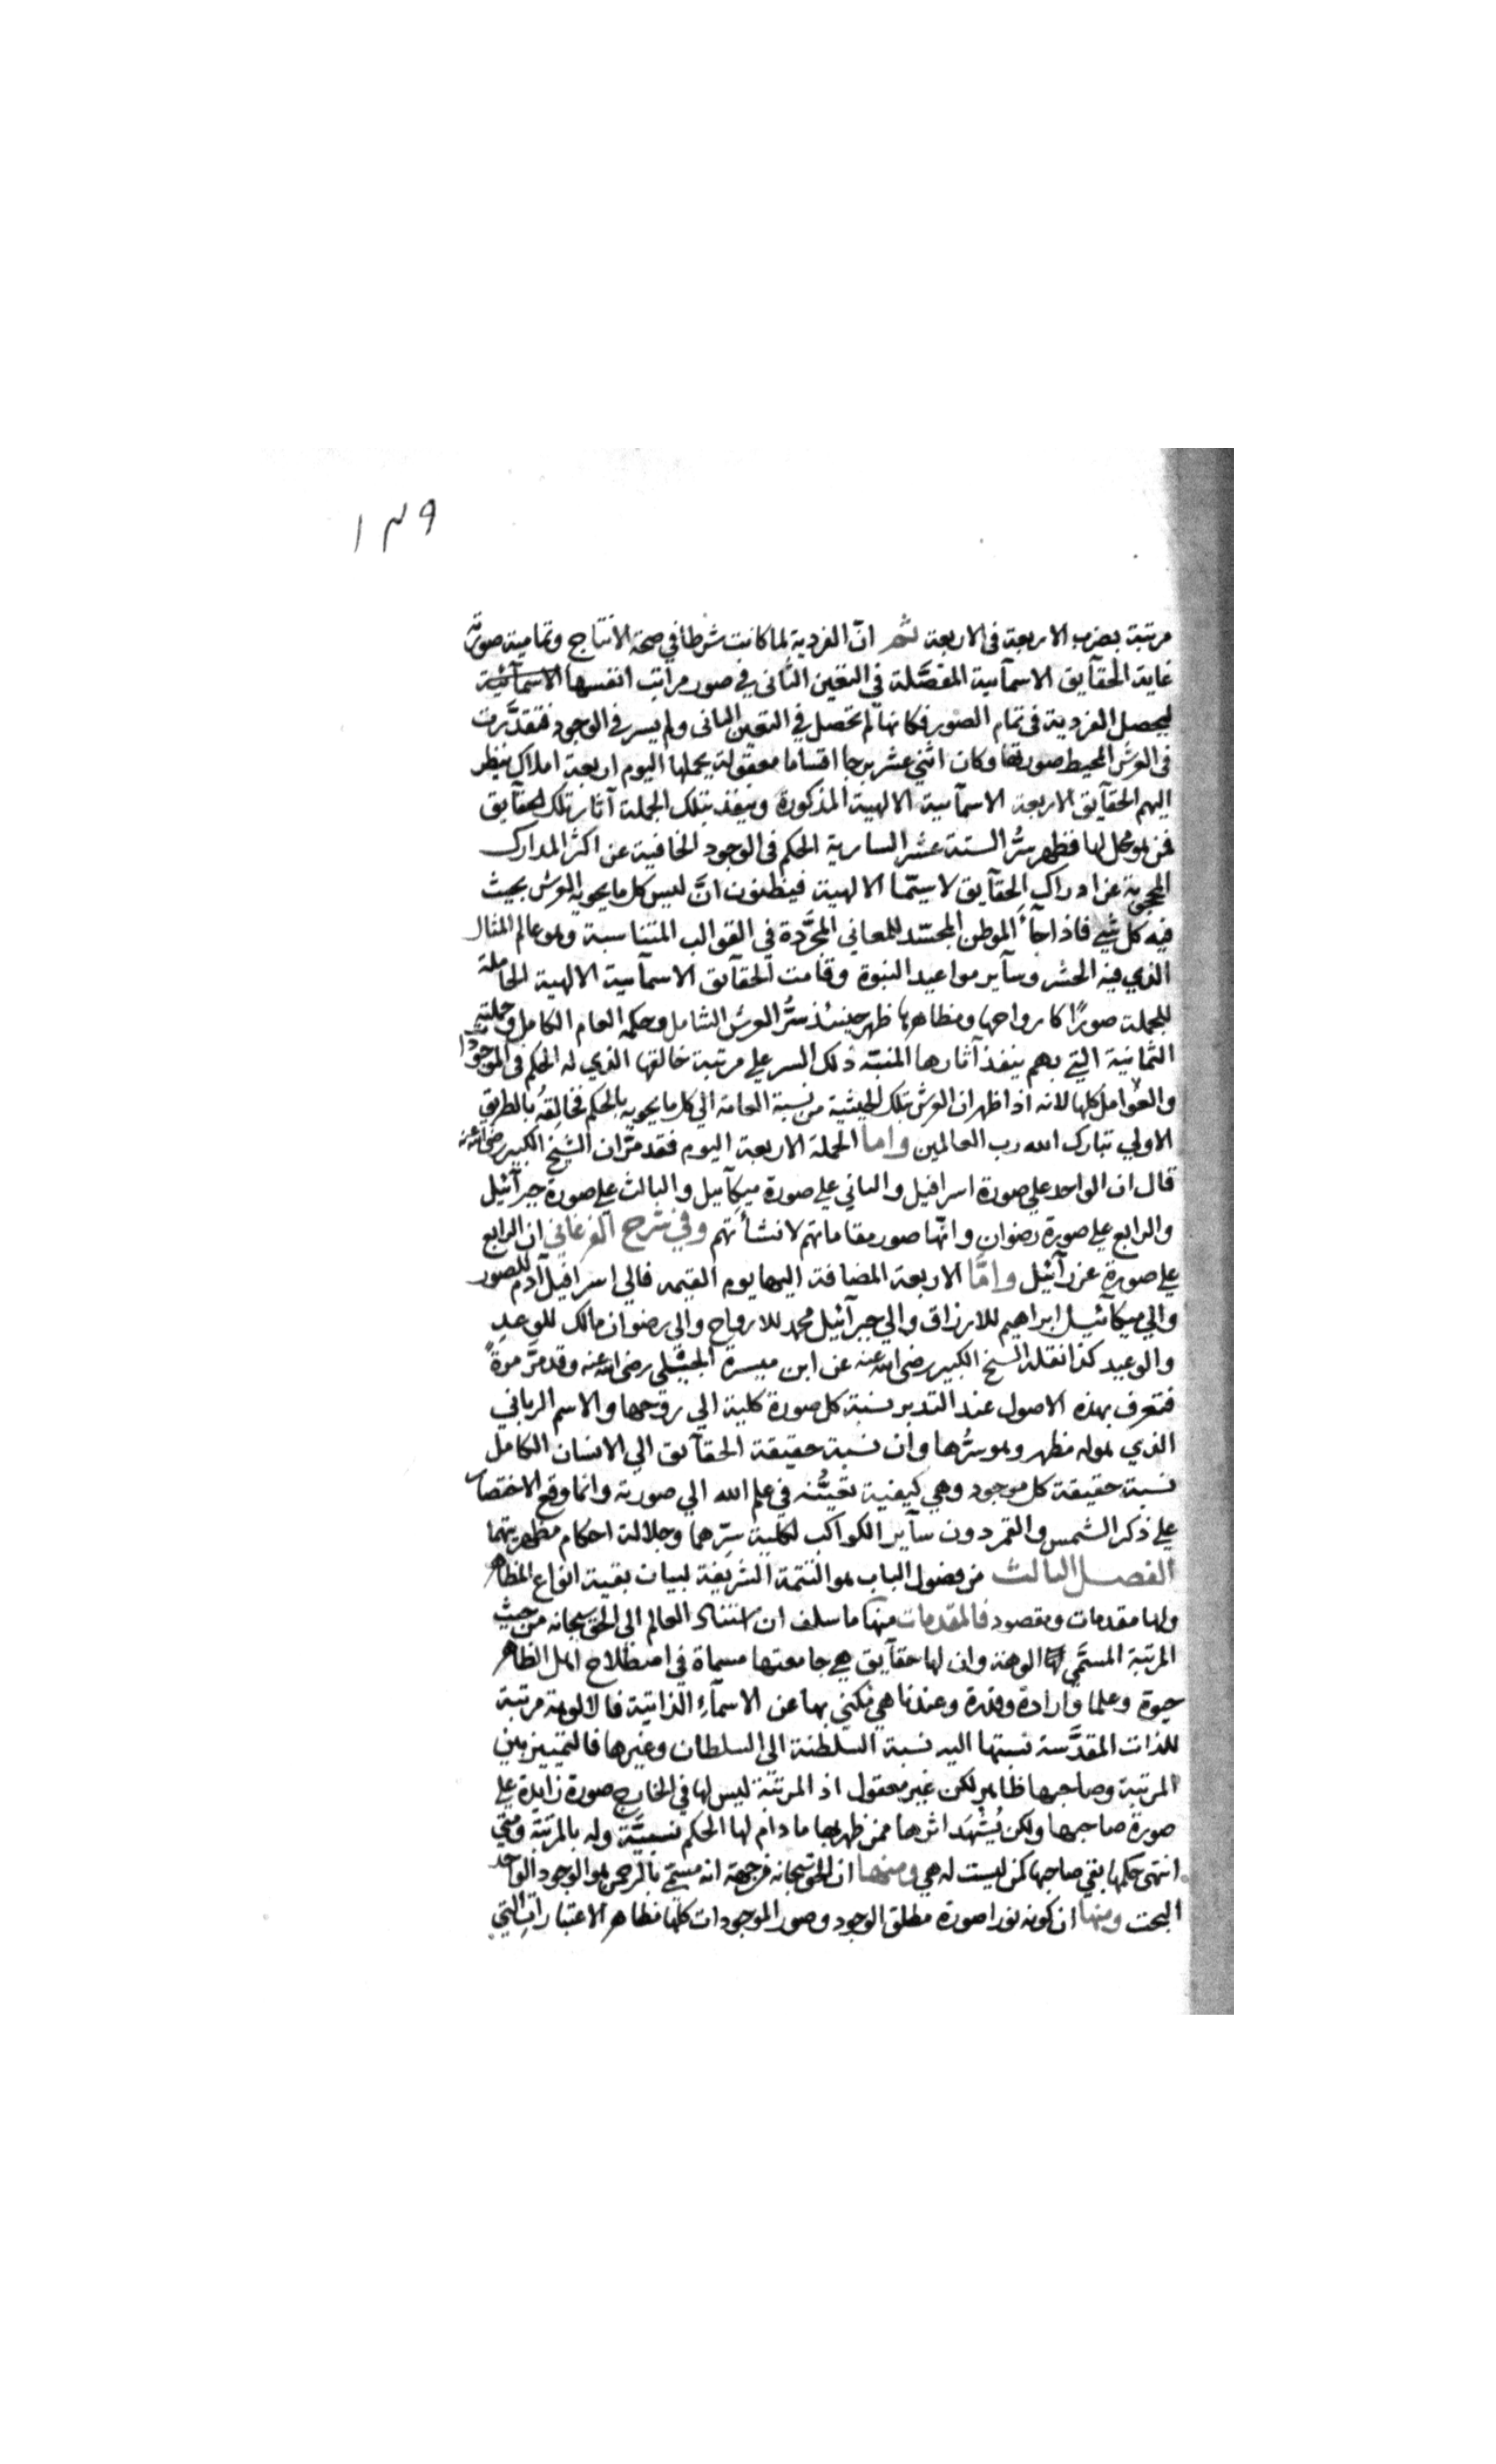 ١٣٩
مرتبة بضرب الاربعة فى الاربعة ثم انّ الفردية لما كانت شرطا في صحة الانتاج وتمامية صورته
غاية الحقآيق الاسمآسية المفصَّلة في التعين الثانى في صور مراتب انفسها الاسمآئية
ليحصل الفردية فى تمام الصور فكانها لم تحصل في التعين الثانى ولم يسر فى الوجود فتقدَّرت
فى العرش المحيط صورتها وكان اثني عشر برجا اقساما معقولة يحملها اليوم اربعة املاك ينظر
اليهم الحقآيق الاربعة الاسمآسية الالهية المذكورة وينفذ بتلك الجملة آثار تلك الحقآيق
فمن هو محل لها فظهر سرُّ الستة عشر السارية الحكم فى الوجود الخافية عن اكثر المدارك
المحجوبة عن ادراك الحقآيق لاسيّما الالهية فيظنون انَّ ليس كل ما يحويه العرش بحيث
فيه كل شيء فاذا جآء الموطن المجسّد للمعاني المجرَّدة في القوالب المتناسبة وهو عالم المثال
الذي فيه الحشر وسآير مواعيد النبوة وقامت الحقآيق الاسمآسية الالهية الحاملة
للجملة صورًا كارواحها ومظاهرها ظهر حينئذ سرُّ العرش الشامل وحكمه العام الكامل وحملته
الثمانية التي بهم ينفذ آثارها المنبّه ذلك السر على مرتبة خالقها الذي له الحكم فى الموجودات
والعوامل كلها لانه اذا ظهر ان العرش بتلك الحيثية من نسبة العامة الي كل ما يحويه بالحكم فخالقه بالطريق
الاولي تبارك الله رب العالمين واما الحملة الاربعة اليوم فقد مرّ ان الشيخ الكبير رضي الله عنه
قال ان الواحد على صورة اسرافيل والثاني على صورة ميكآئيل والثالث على صورة جبرآئيل
والرابع على صورة رضوان وانّها صور مقاماتهم لا نشأتهم وفي شرح الفرغاني ان الرابع
على صورة عزرآئيل وامّا الاربعة المضافة اليها يوم القيمه فالي اسرافيل آدم للصور
والي ميكآئيل ابراهيم للارزاق والي جبرآئيل محمد للارواح والي رضوان مالك للوعد
والوعيد كذا نقله الشيخ الكبير رضى الله عنه عن ابن ميسرة الجبلي رضى الله عنه وقد مرَّ مرةً
فتعرف بهذه الاصول عند التدبر نسبة كل صورة كلية الي روحها والاسم الرباني
الذي هو له مظهر وهو سرُّها وان نسبة حقيقة الحقآيق الي الانسان الكامل
نسبة حقيقة كل موجود وهي كيفية تعيُّنه في علم الله الي صورته وانما وقع الاختصار
على ذكر الشمس والقمر دون سآير الكواكب لكلية سرّهما وجلالة احكام مظهريتهما
الفصل الثالث من فصول الباب هو التتمة الشريفة لبيان بقية انواع المظاهر
ولها مقدمات ومقصود فالمقدمات منها ما سلف ان استناد العالم الي الحق سبحانه من حيث
المرتبة المسمّي بالالوهة وان لها حقآيق هي جامعتها مسماة في اصطلاح اهل الظاهر
حيوة وعلما وارادة وقدرة وعندنا هي نكني بها عن الاسمآء الذاتية فالالوهة مرتبة
للذات المقدَّسة نسبتها اليه نسبة السلطنة الي السلطان وغيرها فالتمييز بين
المرتبة وصاحبها ظاهر لكن غير معقول اذ المرتبة ليس لها في الخارج صورة زايدة على
صورة صاحبها ولكن يُشْهَد اثرها ممن ظهر بها ما دام لها الحكم نسبيَّة وله بالمرتبة ومتي
انتهى حكمها بقي صاحبها كمن ليست له هي ومنها ان الحق سبحانه من جهة انه مسمّي بالرحمن هو الوجود الواحد
البحت ومنها ان كونه نورا صورة مطلق الوجود وصور الموجودات كلها مظاهر الاعتبارات التي